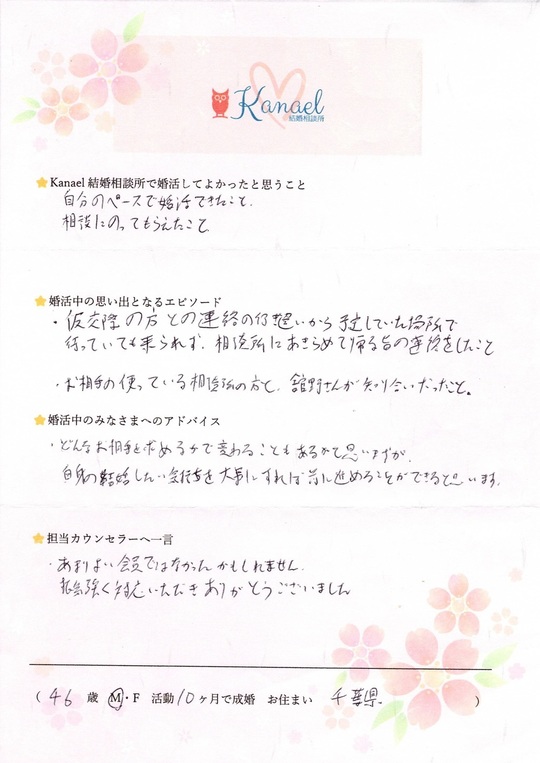 Kanael
結婚相談所
Kanael 結婚相談所で婚活してよかったと思うこと
自分のペースで婚活できたこと.
相談にのってもらえたこと
婚活中の思い出となるエピソード
・仮交際の方との連絡の行き違いから 予定していた場所で
待っていても来られず、相談所にあきらめて帰る旨の連絡をしたこと
・お相手の使っている相談所の方と、舘野さんが知り合いだったこと。
婚活中のみなさまへのアドバイス
・どんなお相手を求めるかで変わることもあるかと思いますが、
自身の結婚したい気持ちを大事にすれば前に進めることができると思います.
担当カウンセラーへ一言
・あまりよい会員ではなかったかもしれません.
根気強く対応いただきありがとうございました
( 46 歳 M・F 活動 10 ヶ月で成婚 お住まい 千葉県 )